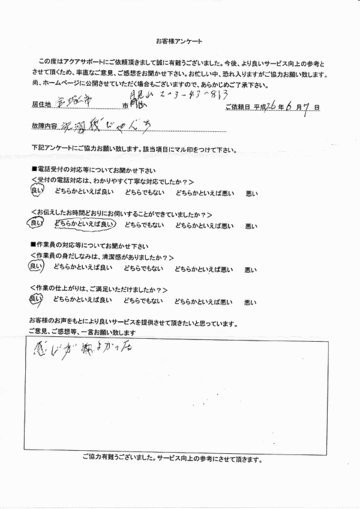 お客様アンケート
この度はアクアサポートにご依頼頂きまして誠に有難うございました。今後、より良いサービス向上の参考と
させて頂くため、率直なご意見、ご感想をお聞かせ下さい。お忙しい中、恐れ入りますがご協力お願い致します。
尚、ホームページに公開させていただく場合もございますので、あらかじめご了承下さい。
居住地 市 2-3-43-813 ご依頼日 平成26年6月7日
故障内容 洗面
下記アンケートにご協力お願い致します。該当項目にマル印をつけて下さい。
■電話受付の対応等についてお聞かせ下さい
＜受付の電話対応は、わかりやすく丁寧な対応でしたか？＞
良い どちらかといえば良い どちらでもない どちらかといえば悪い 悪い
＜お伝えしたお時間どおりにお伺いすることができていましたか？＞
良い どちらかといえば良い どちらでもない どちらかといえば悪い 悪い
■作業員の対応等についてお聞かせ下さい
＜作業員の身だしなみは、清潔感がありましたか？＞
良い どちらかといえば良い どちらでもない どちらかといえば悪い 悪い
＜作業の仕上がりは、ご満足いただけましたか？＞
良い どちらかといえば良い どちらでもない どちらかといえば悪い 悪い
お客様のお声をもとにより良いサービスを提供させて頂きたいと思っています。
ご意見、ご感想等、一言お願い致します
感じが よかった
ご協力有難うございました。サービス向上の参考にさせて頂きます。